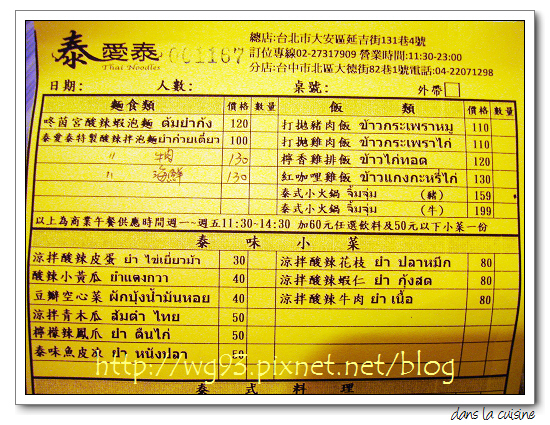 泰愛泰
Thai Noodles
001167
總店:台北市大安區延吉街131巷4號
訂位專線02-27317909 營業時間:11:30-23:00
分店:台中市北區大德街82巷1號電話:04-22071298
日期: 人數: 桌號: 外帶
麵食類 價格 數量 飯類 價格 數量
咚茵宮酸辣蝦泡麵 ต้มยำกุ้ง 120 打拋豬肉飯 ข้าวกระเพราหมู 110
泰愛泰特製酸辣拌泡麵 ยำก๋ายเตี๋ยว 100 打拋雞肉飯 ข้าวกระเพราไก่ 110
〃 牛肉 130 檸香雞排飯 ข้าวไก่ทอด 120
〃 海鮮 130 紅咖哩雞飯 ข้าวแกงกะหรี่ไก่ 130
泰式小火鍋 จิ้มจุ่ม (豬) 159
泰式小火鍋 จิ้มจุ่ม (牛) 199
以上為商業午餐供應時間週一~週五11:30-14:30 加60元任選飲料及50元以下小菜一份
泰味小菜
涼拌酸辣皮蛋 ยำ ไข่เยี่ยวม้า 30 涼拌酸辣花枝 ยำ ปลาหมึก 80
酸辣小黃瓜 ยำแตงกวา 40 涼拌酸辣蝦仁 ยำ กุ้งสด 80
豆瓣空心菜 ผักบุ้งน้ำมันหอย 40 涼拌酸辣牛肉 ยำ เนื้อ 80
涼拌青木瓜 ส้มตำ ไทย 50
檸檬辣鳳爪 ยำ ตีนไก่ 50
泰味魚皮凍 ยำ หนังปลา 50
http://wg93.pixnet.net/blog
泰式料理
dans la cuisine